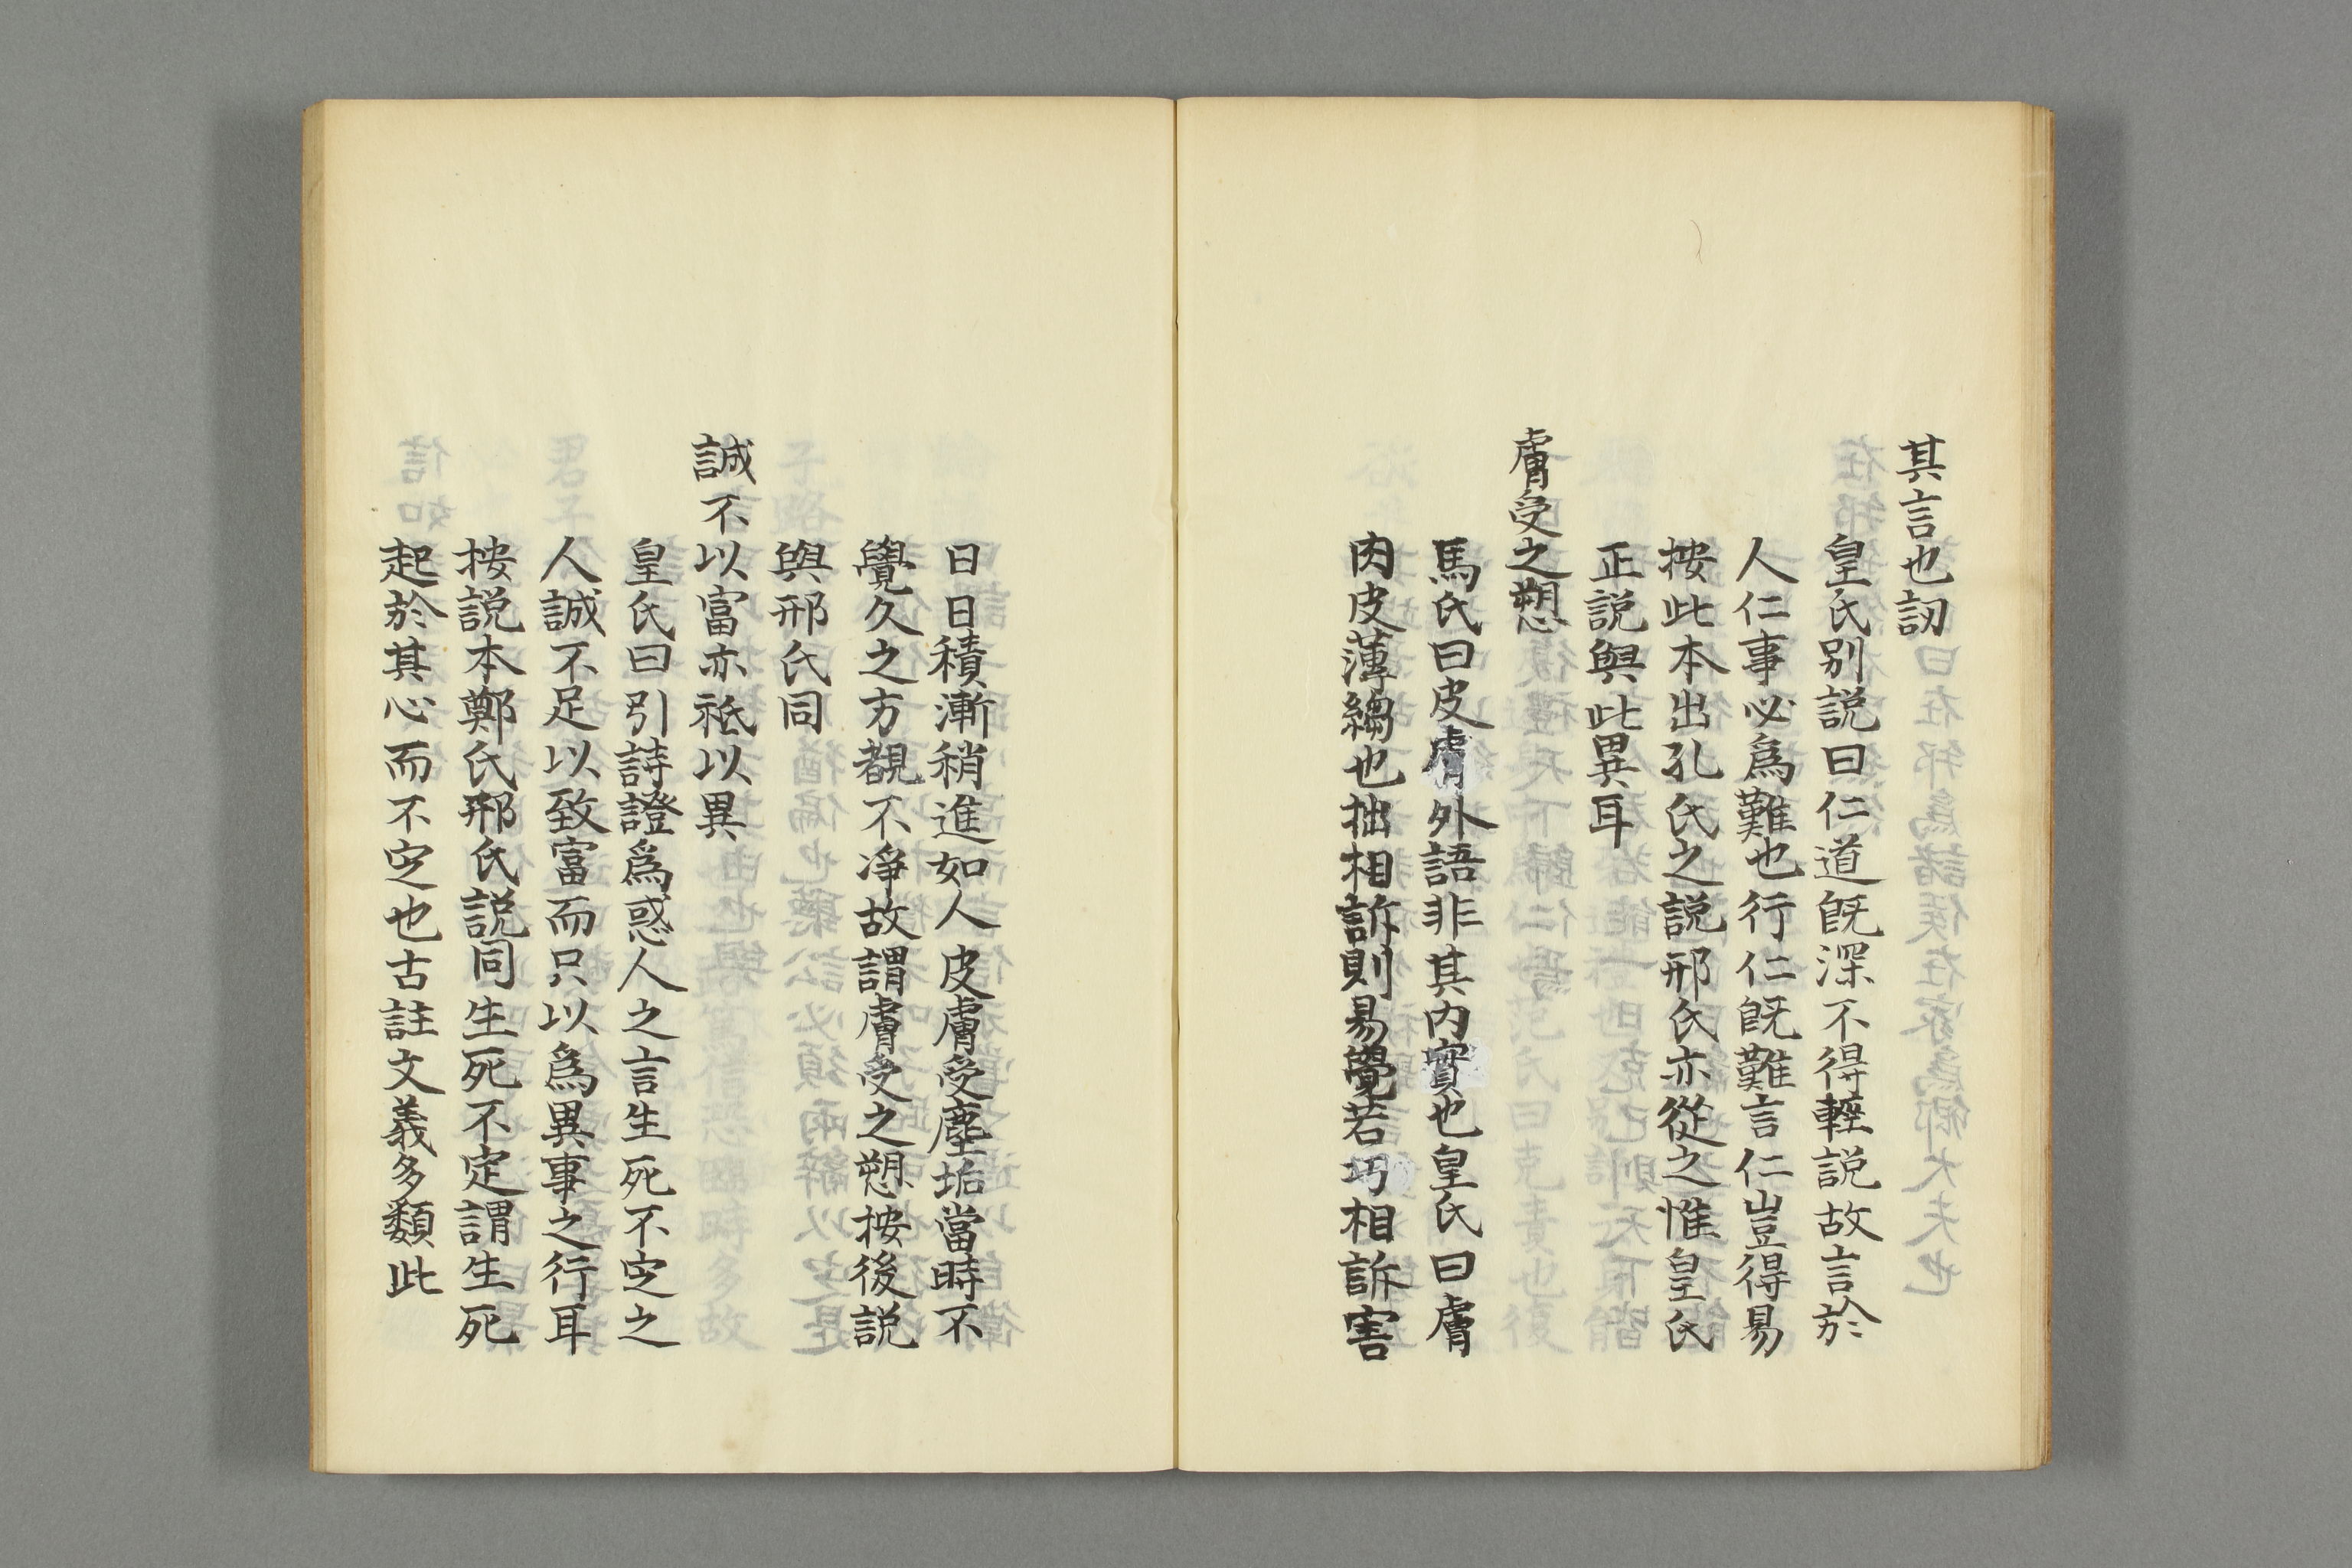 其言也訒
皇氏別説曰仁道既深不得輕説故言於
人仁事必爲難也行仁既難言仁豈得易
按此本出孔氏之説邢氏亦從之惟皇氏
正説與此異耳
膚受之愬
馬氏曰皮膚外語非其内實也皇氏曰膚
肉皮薄縐也拙相訴則易覺若巧相訴害
日日積漸稍進如人皮膚受塵垢當時不
覺久之方覩不淨故謂膚受之愬按後説
與邢氏同
誠不以富亦祗以異
皇氏曰引詩證爲惑人之言生死不㝎之
人誠不足以致富而只以爲異事之行耳
按説本鄭氏邢氏説同生死不定謂生死
起於其心而不㝎也古註文義多類此